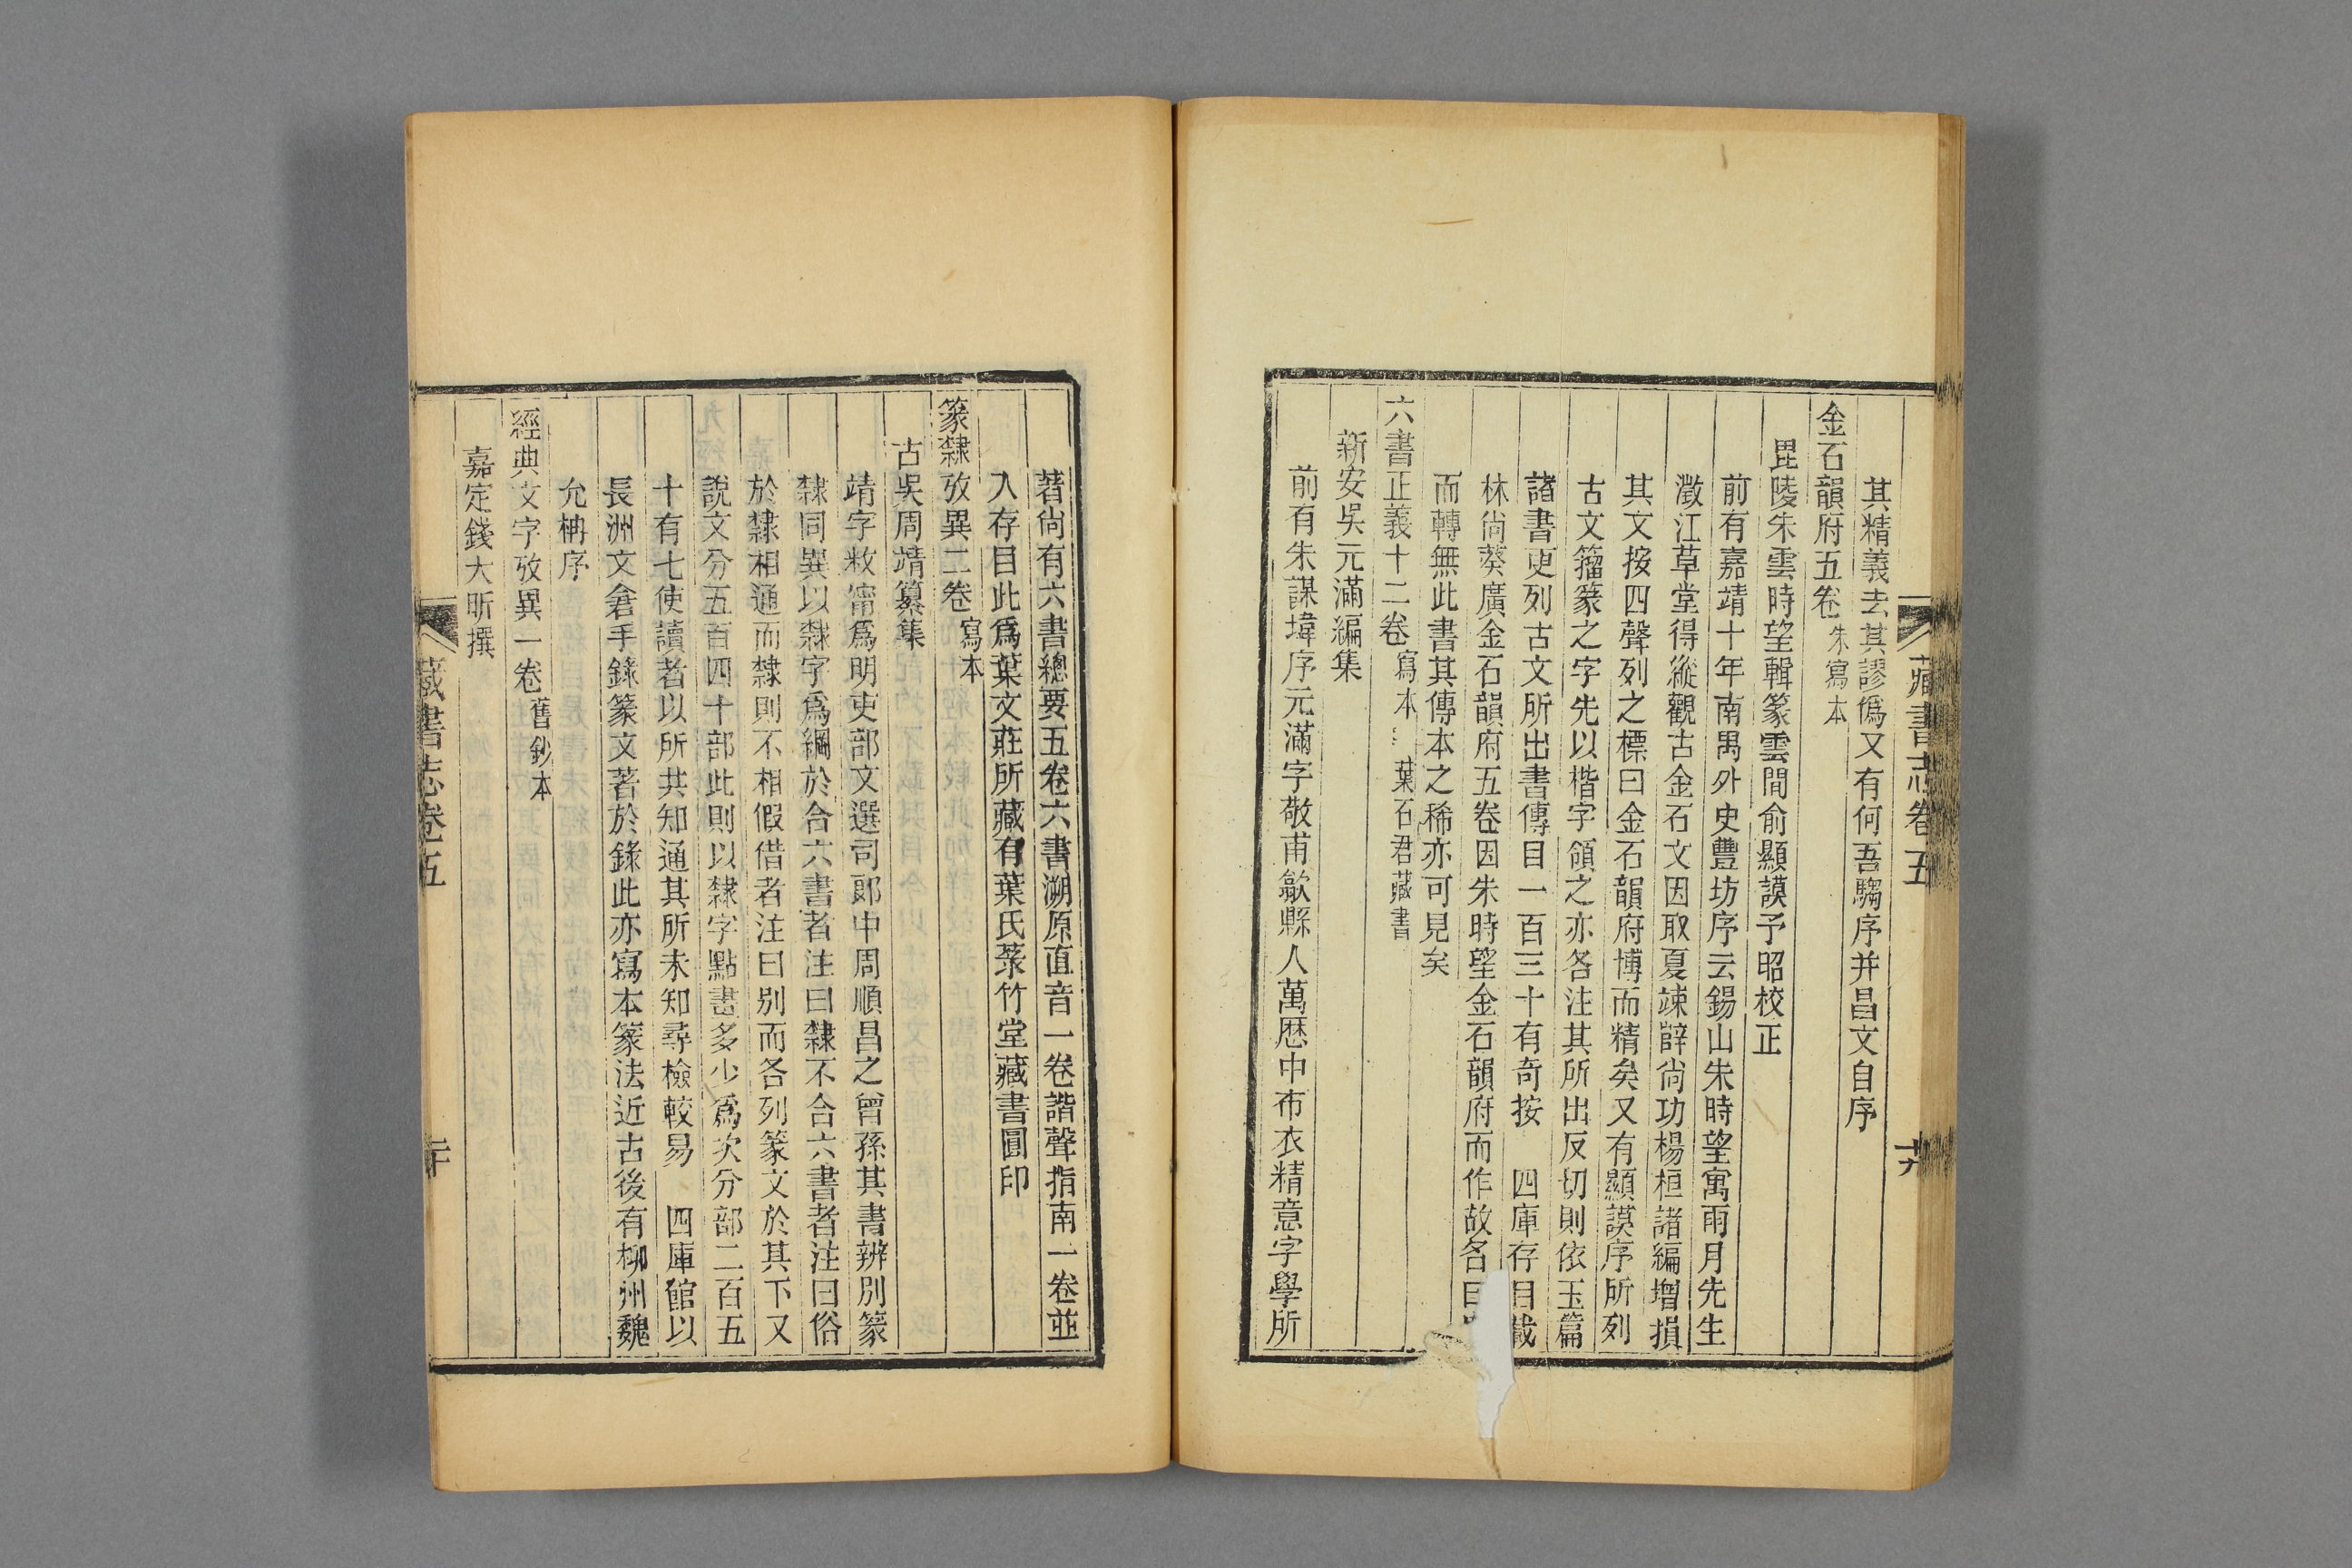 藏書志卷五
十九
其精義去其謬僞又有何吾騶序并昌文自序
金石韻府五卷 朱寫本
毘陵朱雲時望輯篆雲間俞顯謨予昭校正
前有嘉靖十年南禺外史豐坊序云錫山朱時望寓雨月先生
澂江草堂得縱觀古金石文因取夏竦辥尙功楊桓諸編增損
其文按四聲列之標曰金石韻府博而精矣又有顯謨序所列
古文籀篆之字先以楷字領之亦各注其所出反切則依玉篇
諸書更列古文所出書傳目一百三十有奇按 四庫存目載
林尙葵廣金石韻府五卷因朱時望金石韻府而作故名曰
而轉無此書其傳本之稀亦可見矣
六書正義十二卷 寫本 葉石君藏書
新安吳元滿編集
前有朱謀㙔序元滿字敬甫歙縣人萬厯中布衣精意字學所
著尙有六書總要五卷六書溯原直音一卷諧聲指南一卷並
入存目此爲葉文莊所藏有葉氏菉竹堂藏書圓印
篆隸攷異二卷 寫本
古吳周靖纂集
靖字敉甯爲明吏部文選司郞中周順昌之曾孫其書辨別篆
隸同異以隸字爲綱於合六書者注曰隸不合六書者注曰俗
於隸相通而隸則不相假借者注曰別而各列篆文於其下又
說文分五百四十部此則以隸字點畫多少爲次分部二百五
十有七使讀者以所共知通其所未知尋檢較易 四庫館以
長洲文倉手錄篆文著於錄此亦寫本篆法近古後有柳州魏
允枏序
經典文字攷異一卷 舊鈔本
嘉定錢大昕撰
藏書志卷五
二十